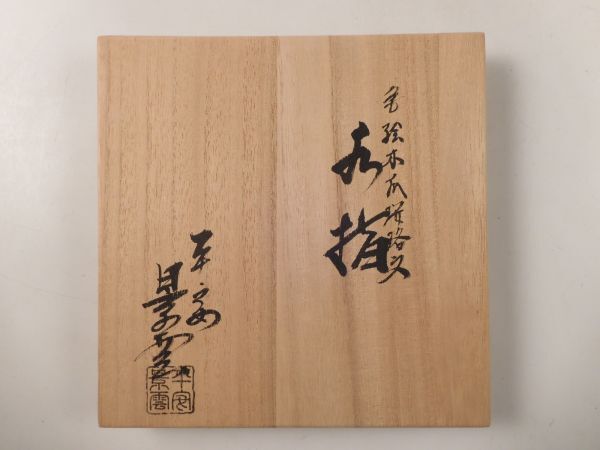 色絵木瓜瓔珞文
水指
平安
景雲
平安
景雲